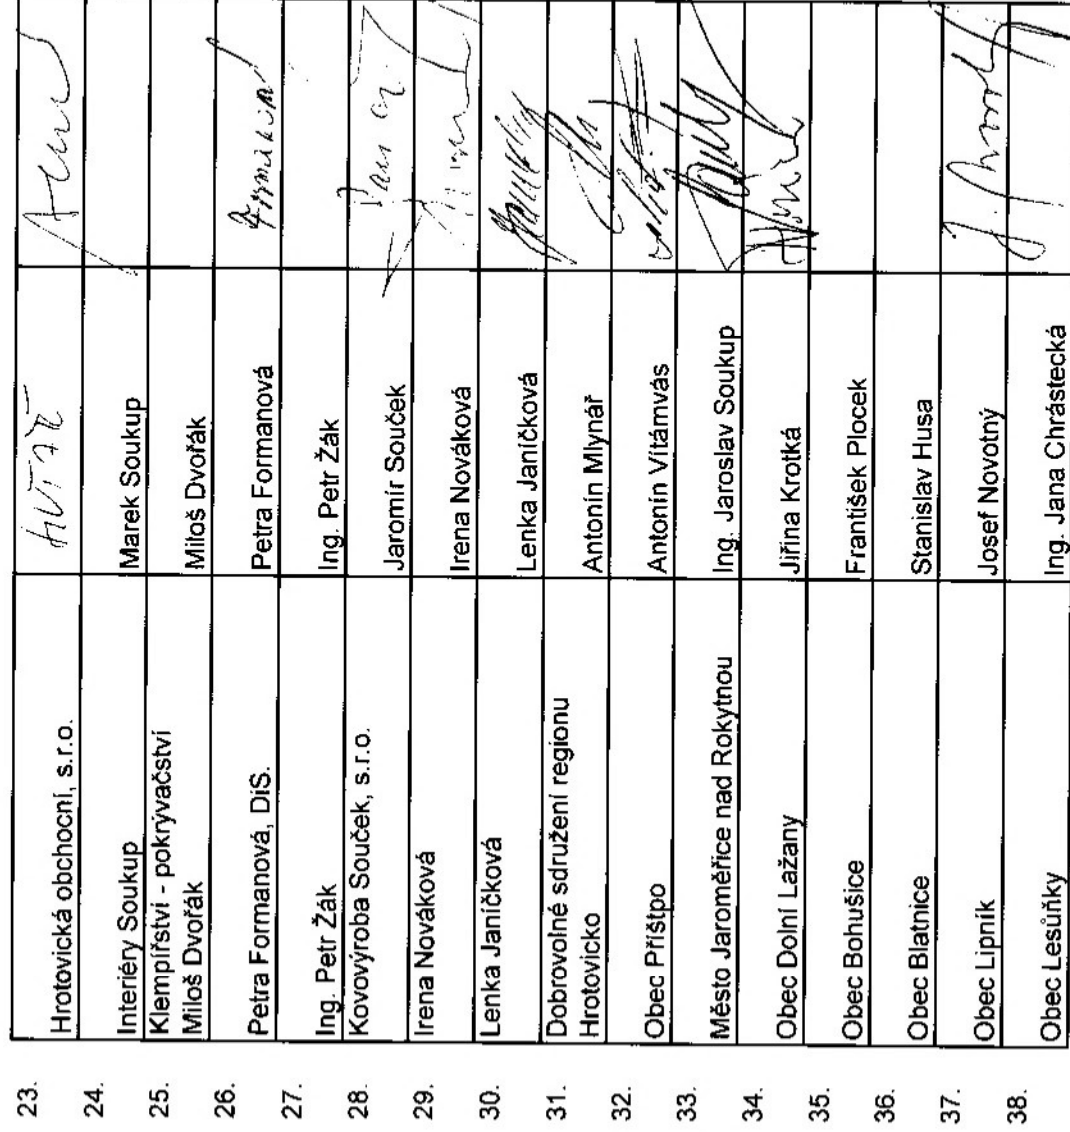 23. Hrotovická obchocní, s.r.o. HUTAŘ
24. Interiéry Soukup Marek Soukup
25. Klempířství - pokrývačství
Miloš Dvořák Miloš Dvořák
26. Petra Formanová, DiS. Petra Formanová
27. Ing. Petr Žák Ing. Petr Žák
28. Kovovýroba Souček, s.r.o. Jaromír Souček
29. Irena Nováková Irena Nováková
30. Lenka Janíčková Lenka Janíčková
31. Dobrovolné sdružení regionu
Hrotovicko Antonín Mlynář
32. Obec Příštpo Antonín Vitámvás
33. Město Jaroměřice nad Rokytnou Ing. Jaroslav Soukup
34. Obec Dolní Lažany Jiřina Krotká
35. Obec Bohušice František Plocek
36. Obec Blatnice Stanislav Husa
37. Obec Lipník Josef Novotný
38. Obec Lesůňky Ing. Jana Chrástecká